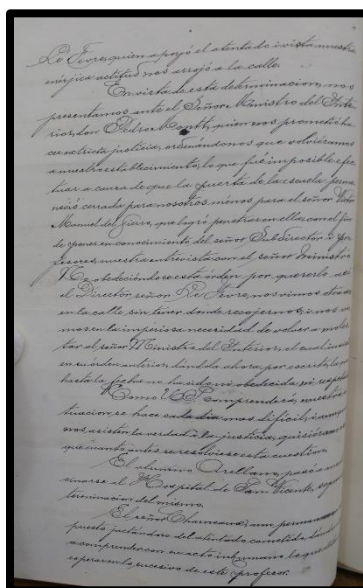 Le Feuvre, quien apoyó el atentado i vista nuestra
enérjica actitud nos arrojó a la calle.
En vista de esta determinacion, nos
presentamos ante el Señor Ministro del Inte-
rior, don Pedro Montt, quien nos prometió ha-
cer estricta justicia, ordenándonos que volviéramos
a nuestro establecimiento, lo que fué imposible efec-
tuar a causa de que la puerta de la escuela perma-
neció cerrada para nosotros, menos para el señor Victor
Manuel del Fierro, que logró penetrar en ella, con el fin
de poner en conocimiento del señor Subdirector i pro-
fesores, nuestra entrevista con el señor Ministro
No obedeciéndose esta órden por quererlo así
el Director señor Le Feuvre, nos vimos otra vez
en la calle sin tener donde recojernos; i nos vi-
mos en la imperiosa necesidad de volver a moles-
tar al señor Ministro del Interior, el cual insistió
en su órden anterior, dándola ahora por escrito, la que
hasta la fecha no ha sido ni obedecida ni respetada
Como US. comprenderá, nuestra si-
tuacion se hace cada dia mas difícil; i aunque
nos asisten la verdad i la justicia, quisiéramos
que cuanto ántes se resolviese esta cuestion.
El alumno Arellano, pasó a
al Hospital de San Vicente,
terminacion del mismo.
El señor
puesta jactándose del atentado cometido, dando
a comprender con su acto inhumano lo que
esperar en lo sucesivo de este profesor.